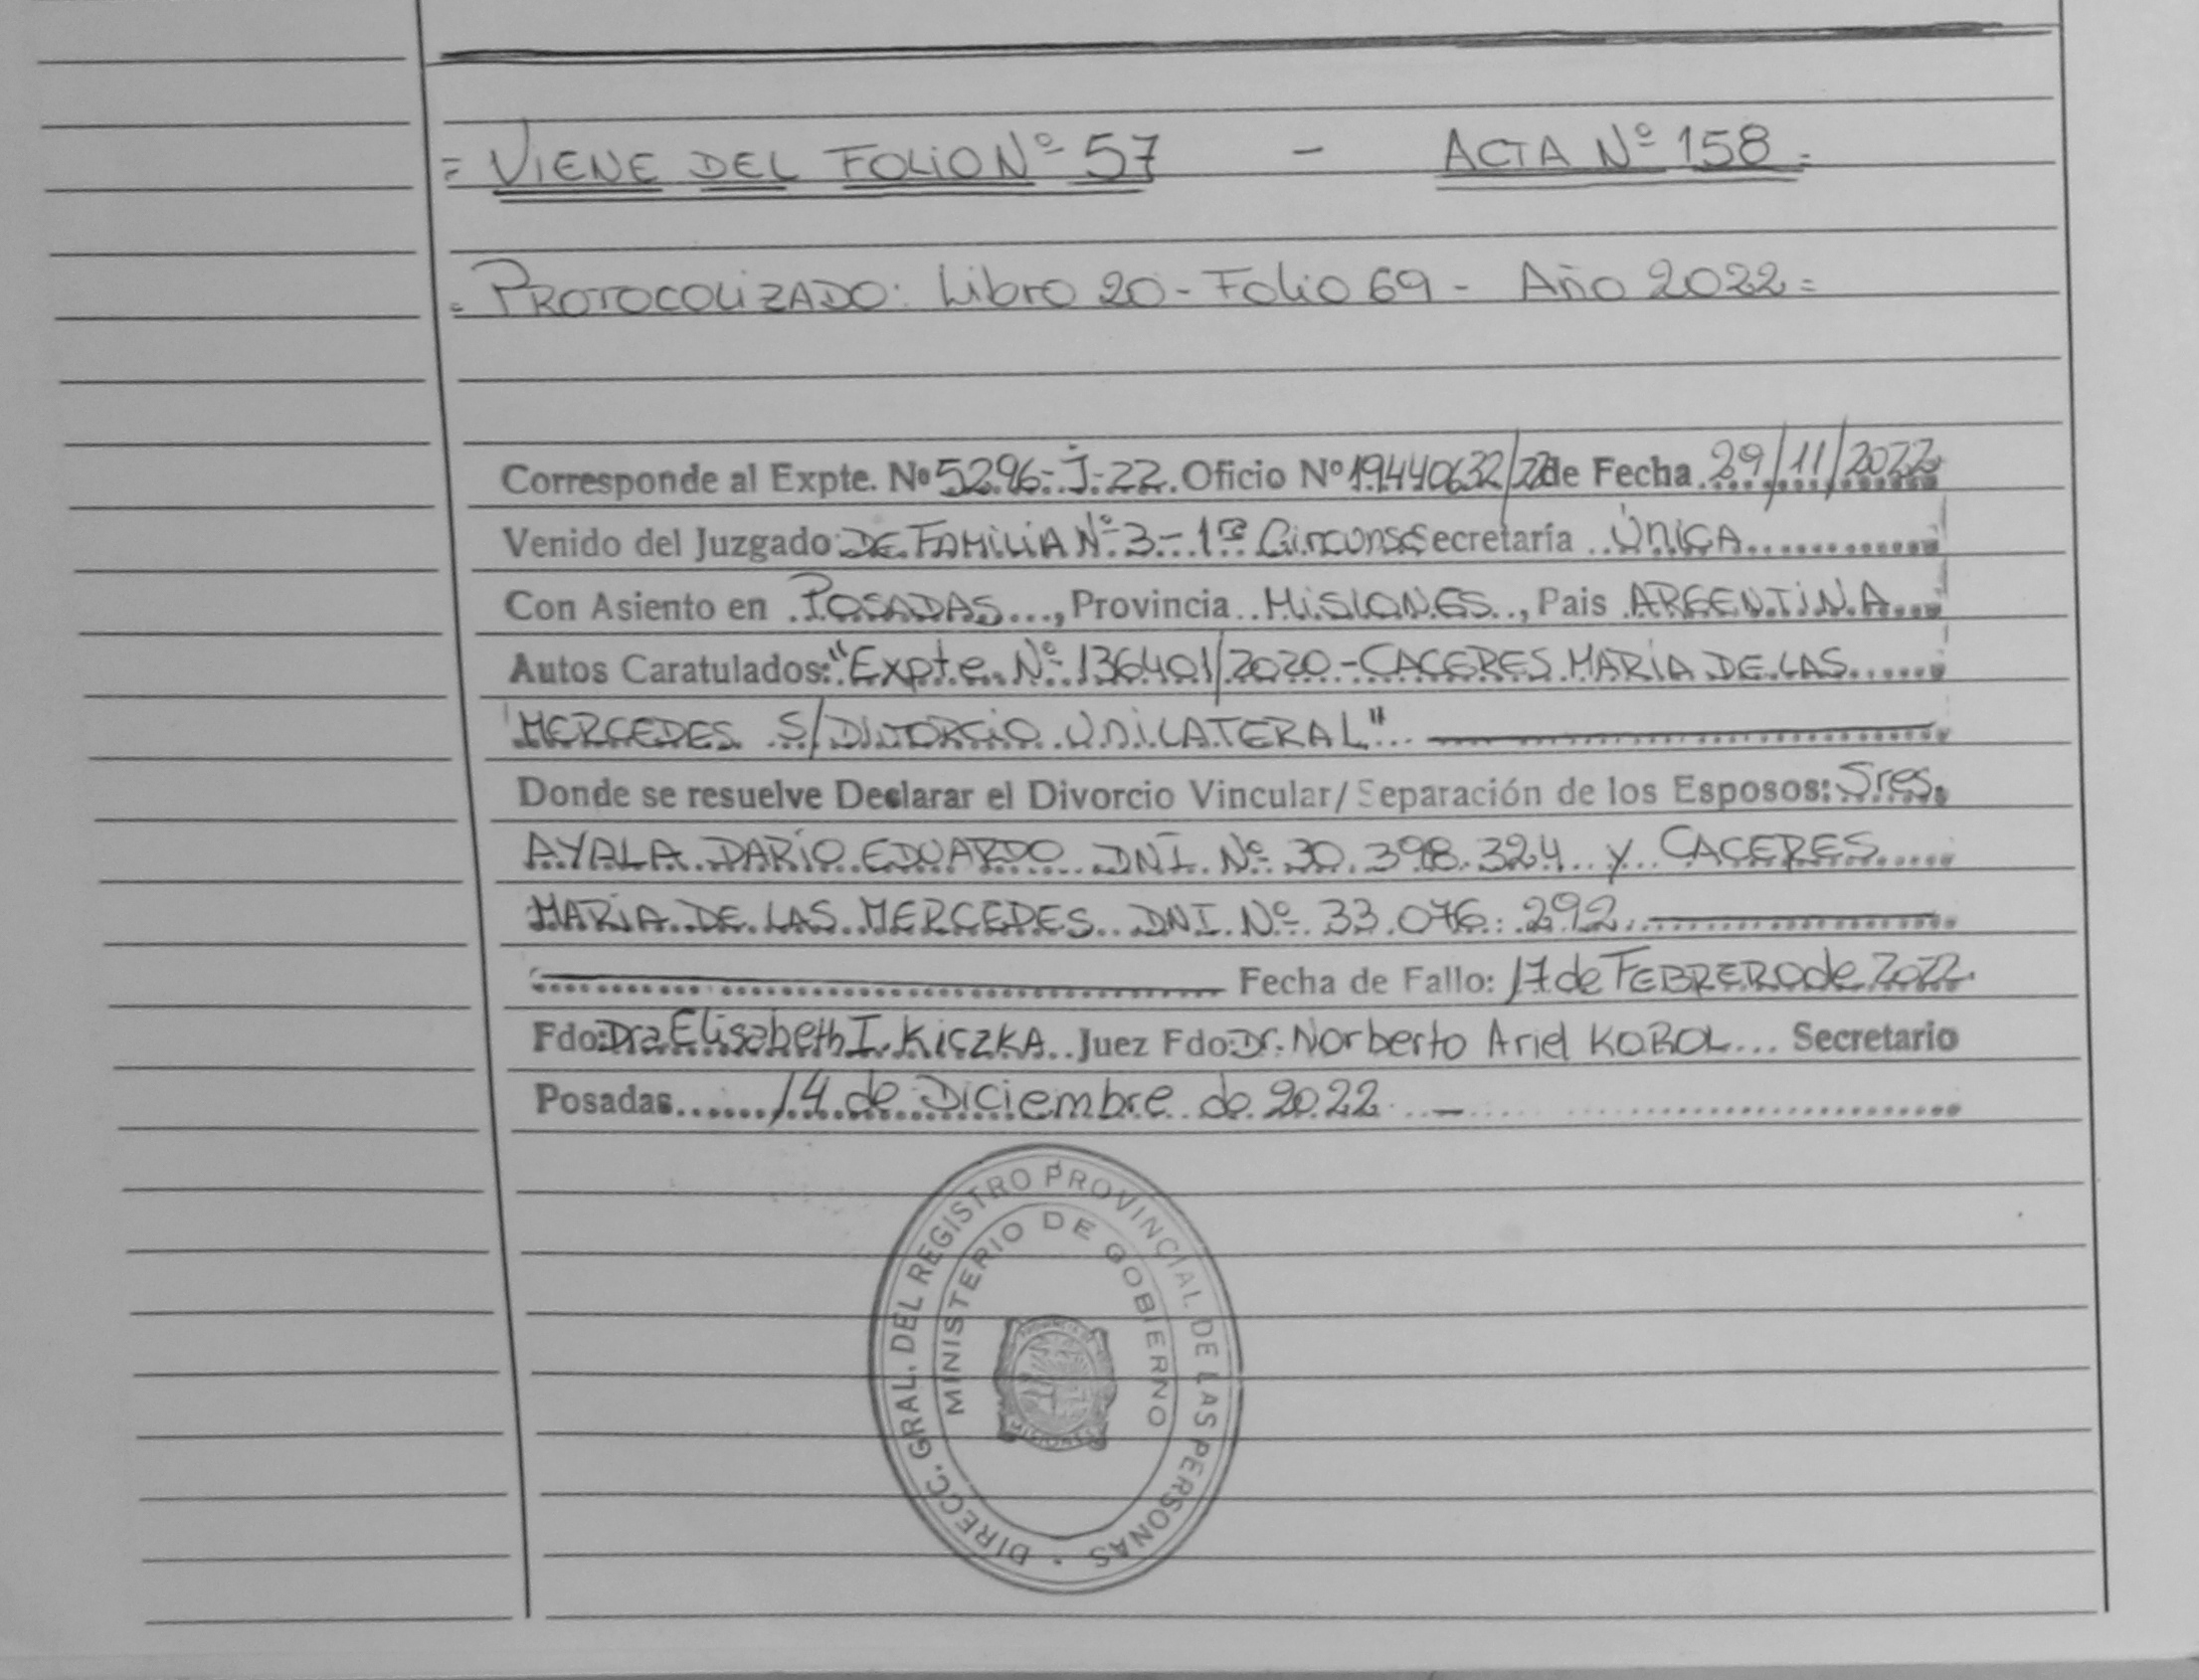 = VIENE DEL FOLIO Nº 57 - ACTA Nº 158 =
= PROTOCOLIZADO: Libro 20 - Folio 69 - Año 2022 =
Corresponde al Expte. Nº 5296-J-22. Oficio Nº 19440632/22 de Fecha 29/11/2022
Venido del Juzgado DE FAMILIA Nº 3 - 1ra Circunsc Secretaría ÚNICA
Con Asiento en POSADAS..., Provincia MISIONES.., Pais ARGENTINA
Autos Caratulados: "Expte. Nº 136401/2020 - CACERES MARIA DE LAS
MERCEDES S/DIVORCIO UNILATERAL"
Donde se resuelve Declarar el Divorcio Vincular/ Separación de los Esposos: Sres.
AYALA DARÍO EDUARDO DNI. Nº 30.398.324 y CACERES
MARIA DE LAS MERCEDES DNI. Nº 33.076.292
Fecha de Fallo: 17 de FEBRERO de 2022.
Fdo: Dra Elisabeth I. KICZKA.. Juez Fdo: Dr. Norberto Ariel KOROL... Secretario
Posadas 14 de Diciembre de 2022 -
DIRECC. GRAL. DEL REGISTRO PROVINCIAL DE LAS PERSONAS
MINISTERIO DE GOBIERNO
MISIONES